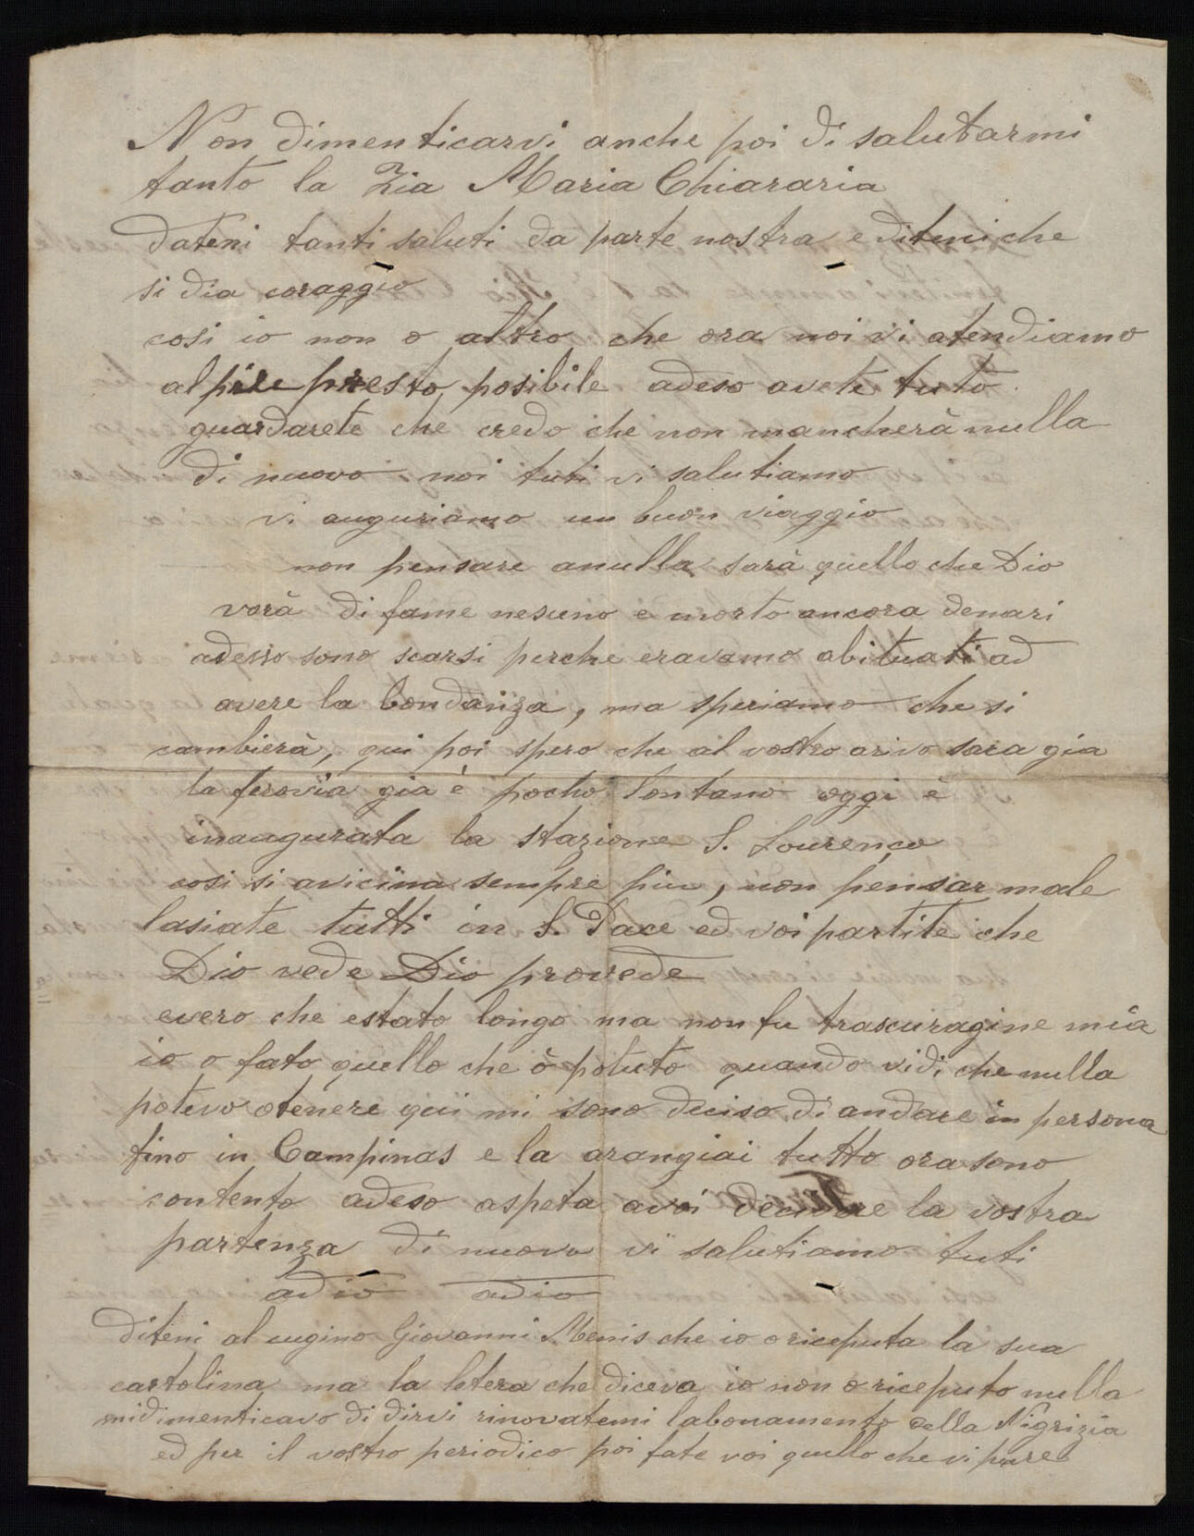 Non dimenticarvi anche poi di salutarmi
tanto la Zia Maria Chiararia
dateni tanti saluti da parte nostra e diteni che
si dia coraggio
cosi io non o altro che ora noi vi atendiamo
al piu presto posibile adeso avete tuto
guardarete che credo che non mancherà nulla
di nuovo noi tuti vi salutiamo
vi auguriamo un buon viaggio
non pensare anulla sarà quello che Dio
vorà di fame nesuno e morto ancora denari
adesso sono scarsi perche eravamo abituati ad
avere la bondanza, ma speriamo che si
cambierà, qui poi spero che al vostro arivo sara gia
la ferovia gia è pocho lontano oggi è
inaugurata la stazione S. Lourenço
cosi si avicina sempre piu, non pensar male
lasiate tutti in S. Pace ed voi partite che
Dio vede Dio provede
evero che estato longo ma non fu trascuragine mia
io o fato quello che ò potuto quando vidi che nulla
potevo otenere qui mi sono deciso di andare in persona
fino in Campinas e la arangiai tutto ora sono
contento adeso aspeta avoi decidere la vostra
partenza di nuovo vi salutiamo tuti
adio adio
Diteni al cugino Giovanni Menis che io o riceputa la sua
cartolina ma la letera che diceva io non o riceputo nulla
midimenticavo di dirvi rinovatemi labonamento della Nigrizia
ed per il vostro periodico poi fate voi quello che vi pare